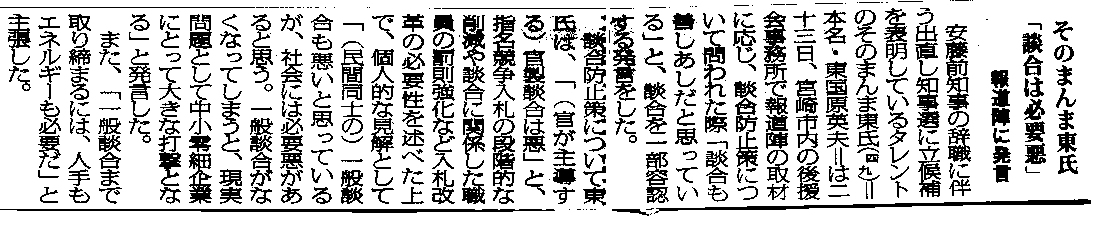 そのまんま東氏
「談合は必要悪」
報道陣に発言
安藤前知事の辞職に伴
う出直し知事選に立候補
を表明しているタレント
のそのまんま東氏(四九)＝
本名・東国原英夫＝は二
十三日、宮崎市内の後援
会事務所で報道陣の取材
に応じ、談合防止策につ
いて問われた際「談合も
善しあしだと思ってい
る」と、談合を一部容認
する発言をした。
談合防止策について東
氏は、「（官が主導す
る）官製談合は悪」と、
指名競争入札の段階的な
削減や談合に関係した職
員の罰則強化など入札改
革の必要性を述べた上
で、個人的な見解として
「（民間同士の）一般談
合も悪いと思っている
が、社会には必要悪があ
ると思う。一般談合がな
くなってしまうと、現実
問題として中小零細企業
にとって大きな打撃とな
る」と発言した。
また、「一般談合まで
取り締まるには、人手も
エネルギーも必要だ」と
主張した。